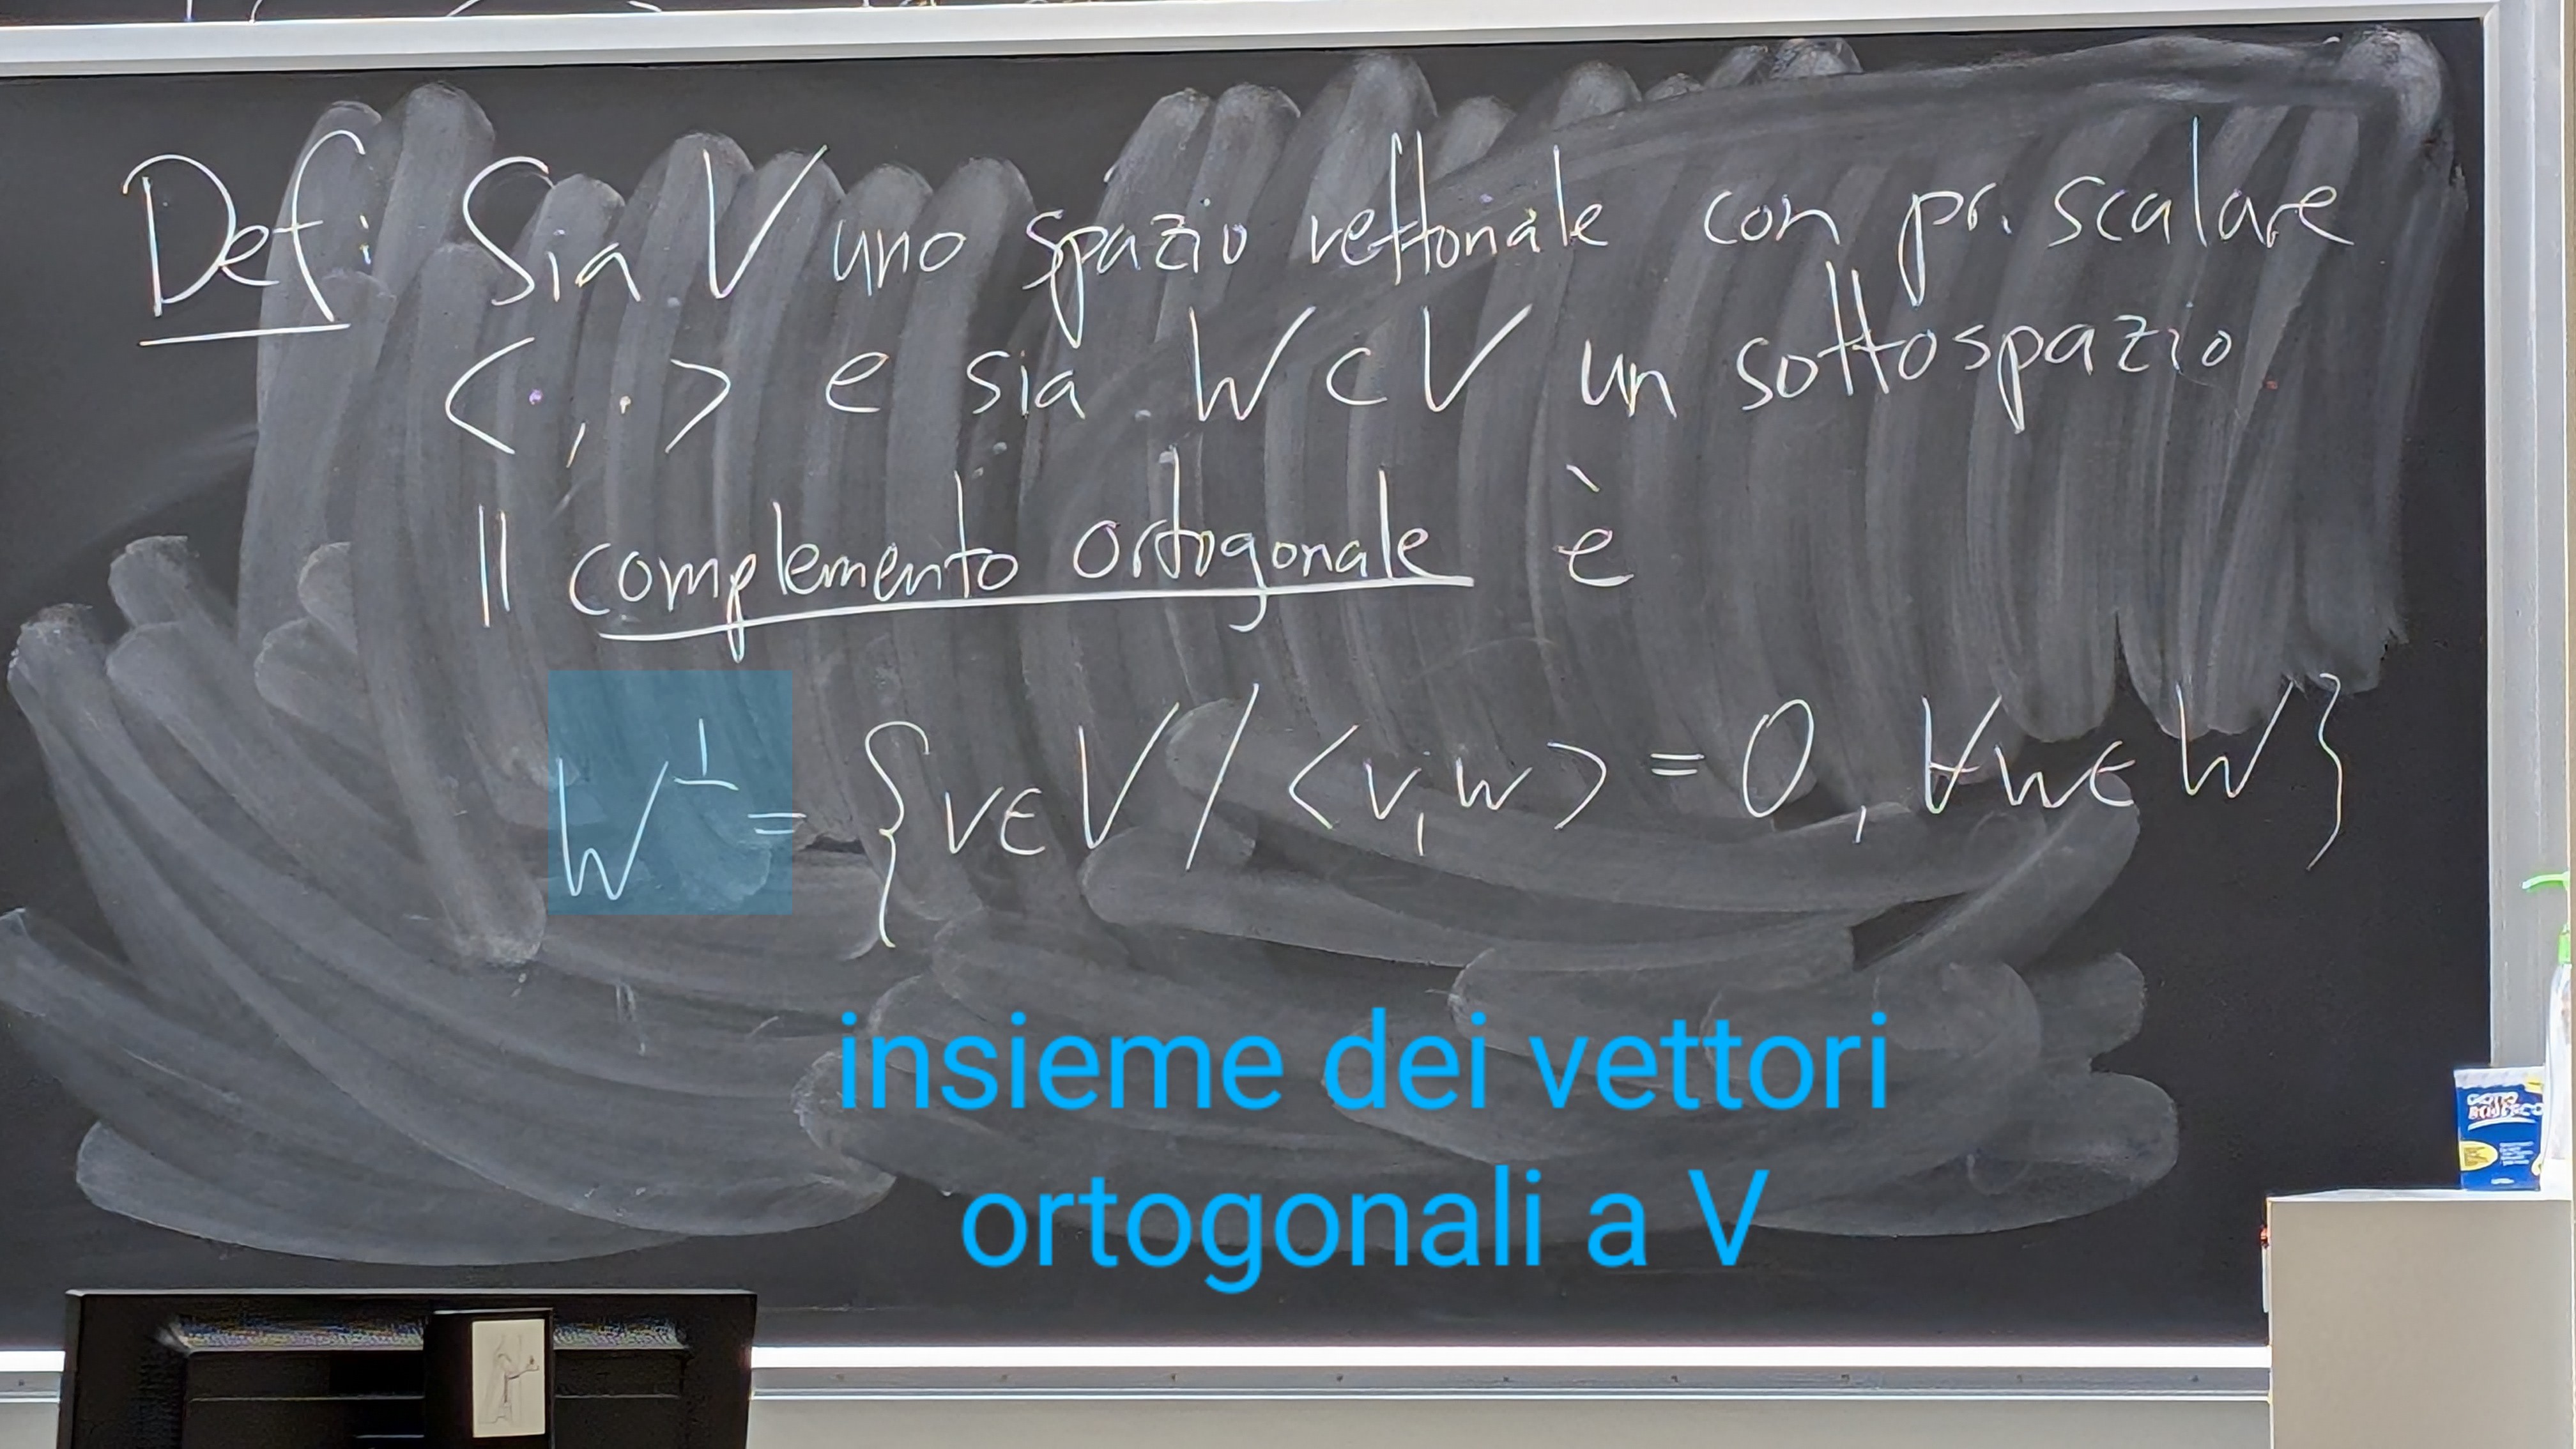 Def: Sia V uno spazio vettoriale con pr. scalare
<·,·> e sia W ⊂ V un sottospazio
Il complemento ortogonale è
W^⊥ = {v ∈ V / <v,w> = 0, ∀w ∈ W}
insieme dei vettori
ortogonali a V